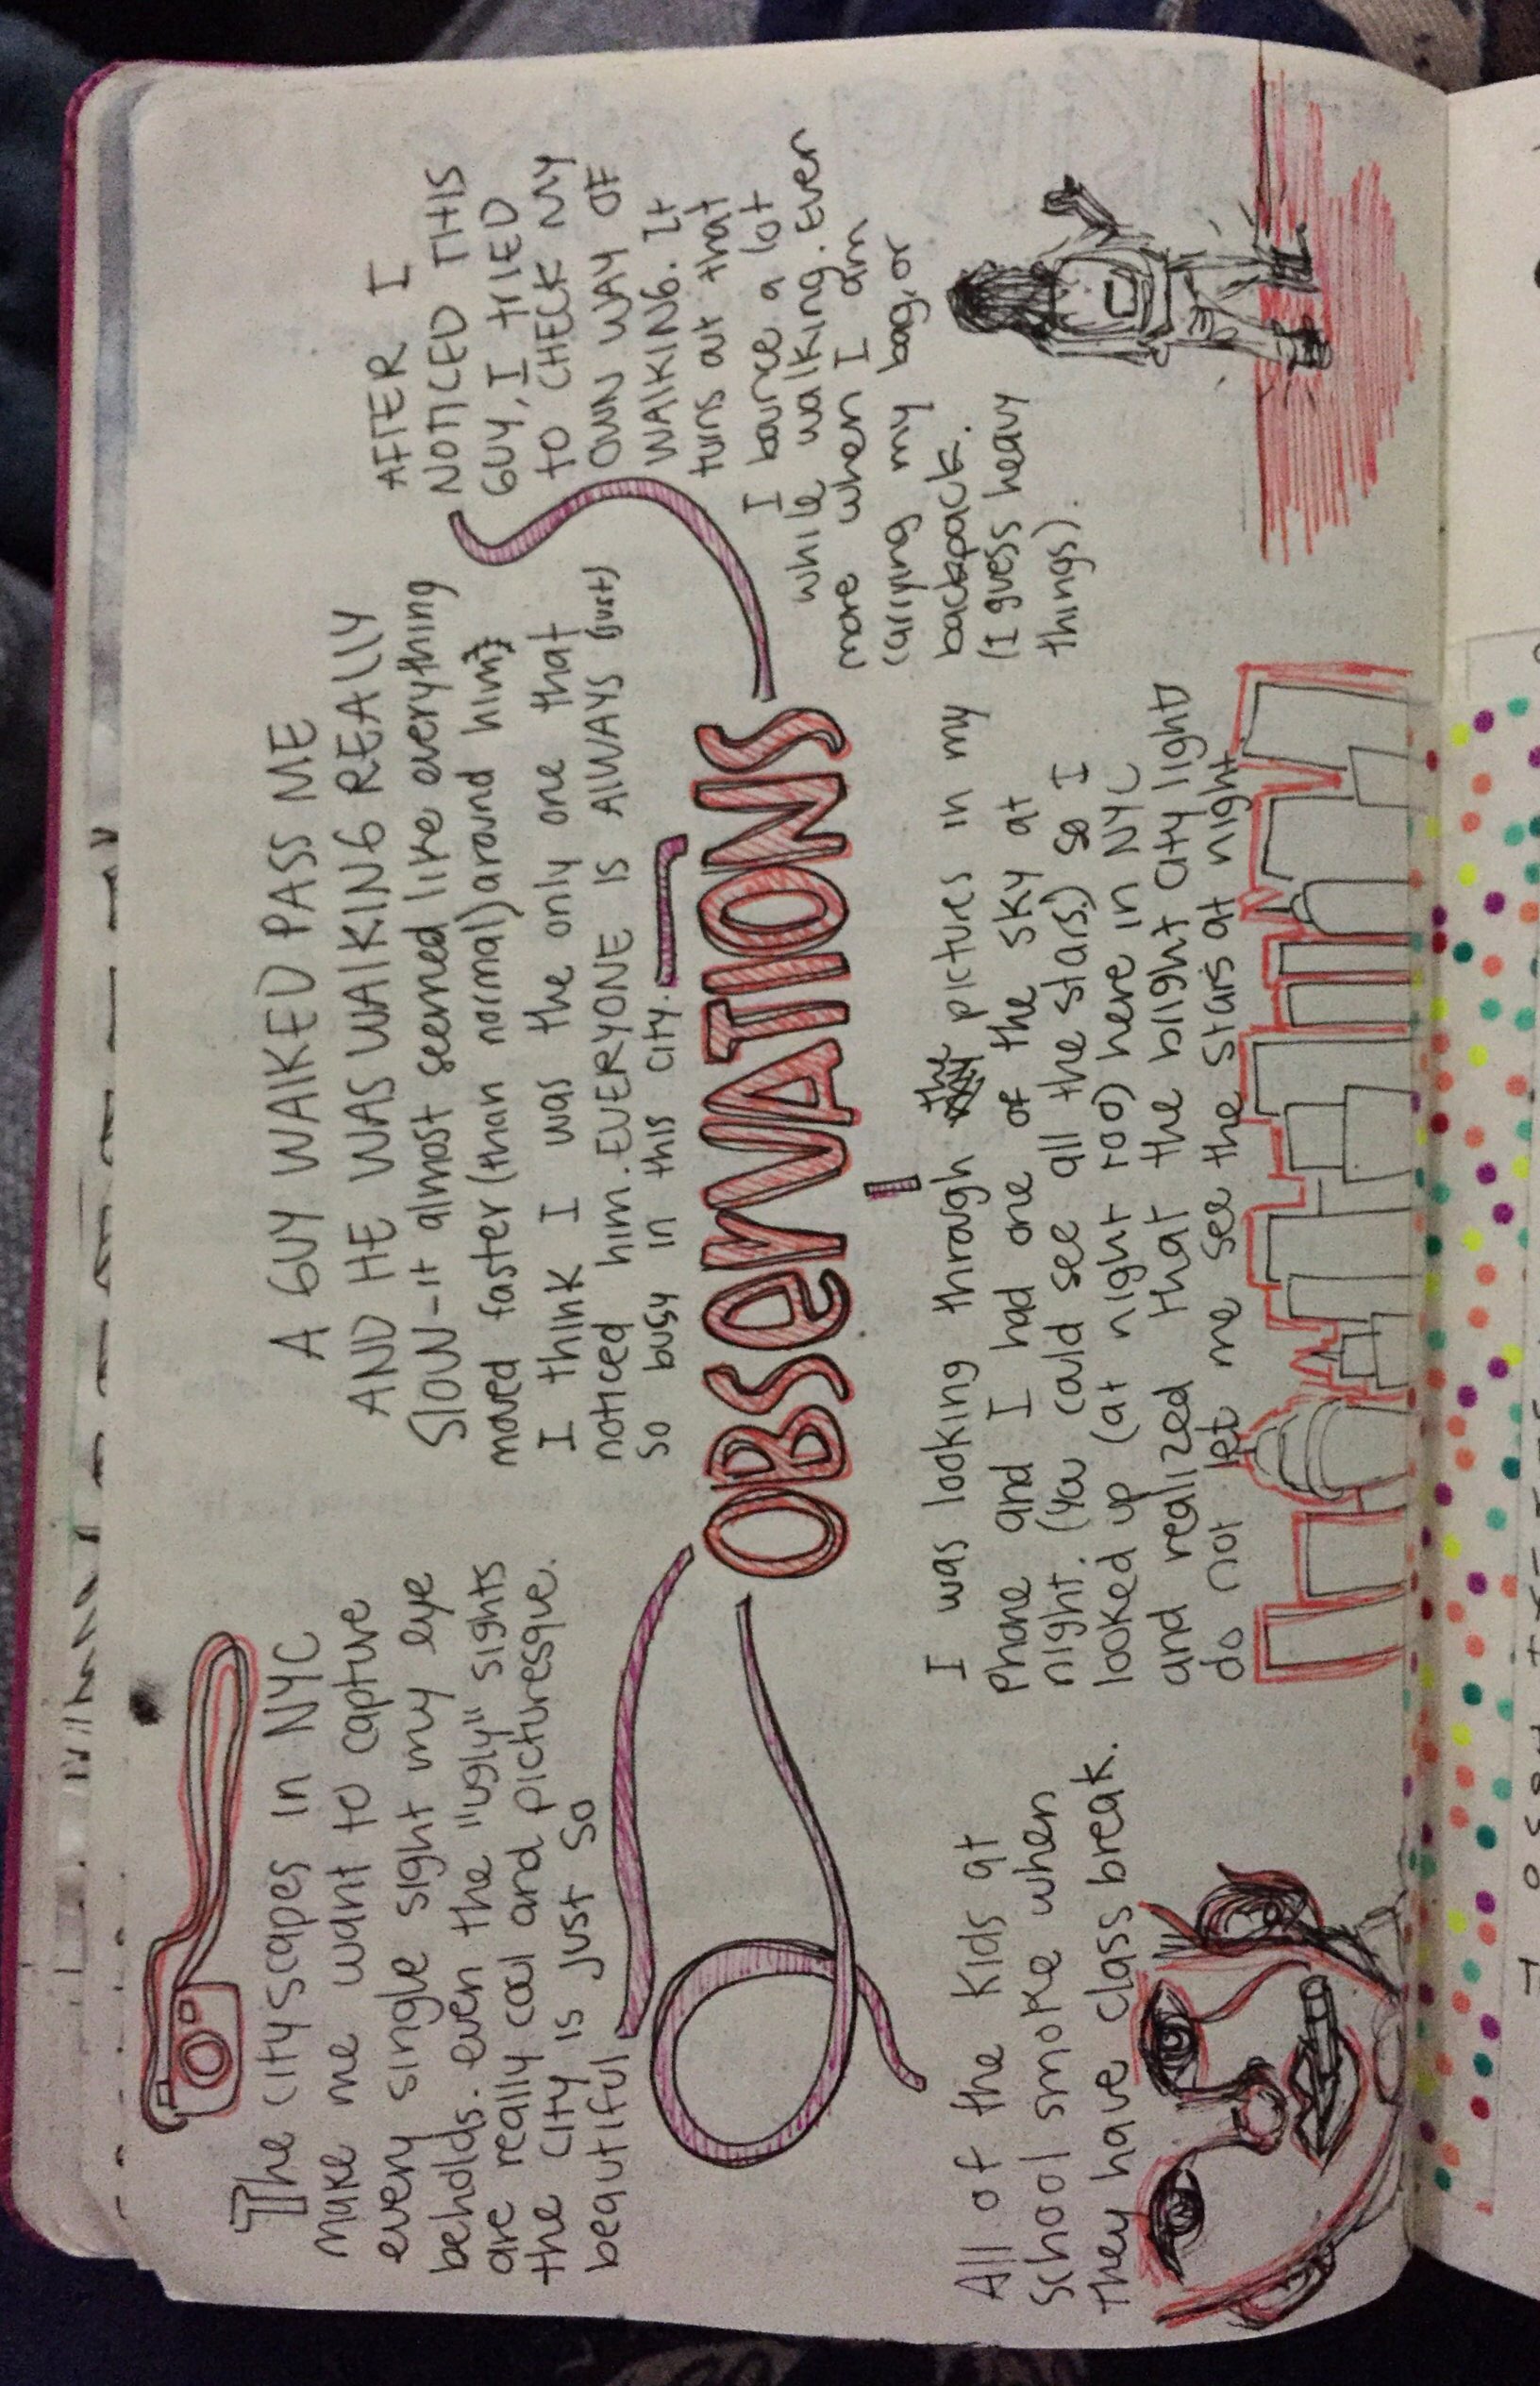 The cityscapes in NYC
make me want to capture
every single sight my eye
beholds. even the "ugly" sights
are really cool and picturesque.
the city is just so
beautiful
A GUY WALKED PASS ME
AND HE WAS WALKING REALLY
SLOW - it almost seemed like everything
moved faster (than normal) around him.
I think I was the only one that
noticed him. EVERYONE IS ALWAYS (just)
so busy in this city.
AFTER I
NOTICED THIS
GUY, I TRIED
TO CHECK MY
OWN WAY OF
WALKING. It
turns out that
I bounce a lot
while walking. Even
more when I am
carrying my bag, or
backpack.
(I guess heavy
things).
OBSERVATIONS
All of the kids at
school smoke when
they have class break.
I was looking through the pictures in my
phone and I had one of the sky at
night. (you could see all the stars.) so I
looked up (at night too) here in NYC
and realized that the bright city light
do not let me see the stars at night